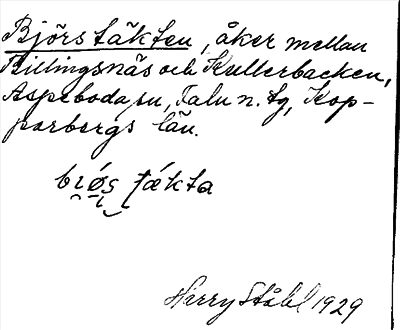 Björstäkten, åker mellan
Rillingsnäs och Kullerbacken,
Aspeboda sn, Falu n. tg, Kop-
parbergs län.
brǿs tǽkta
Harry Ståhl 1929